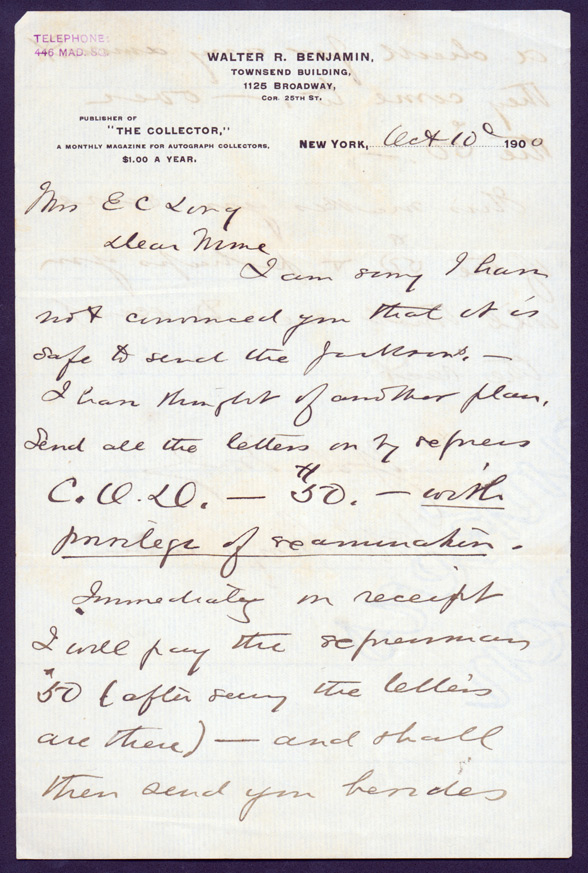 TELEPHONE:
446 MAD. SQ.
WALTER R. BENJAMIN,
TOWNSEND BUILDING,
1125 BROADWAY,
COR. 25TH ST.
PUBLISHER OF
"THE COLLECTOR,"
A MONTHLY MAGAZINE FOR AUTOGRAPH COLLECTORS,
$1.00 A YEAR.
NEW YORK, Oct 10 1900
Mrs E C Long
Dear Mme
I am sorry I have
not convinced you that it is
safe to send the Jacksons. —
I have thought of another plan.
Send all the letters on by express
C.O.D. — $50. — with
privilege of examination.
Immediately on receipt
I will pay the expressman
$50 (after seeing the letters
are there) — and shall
then send you besides